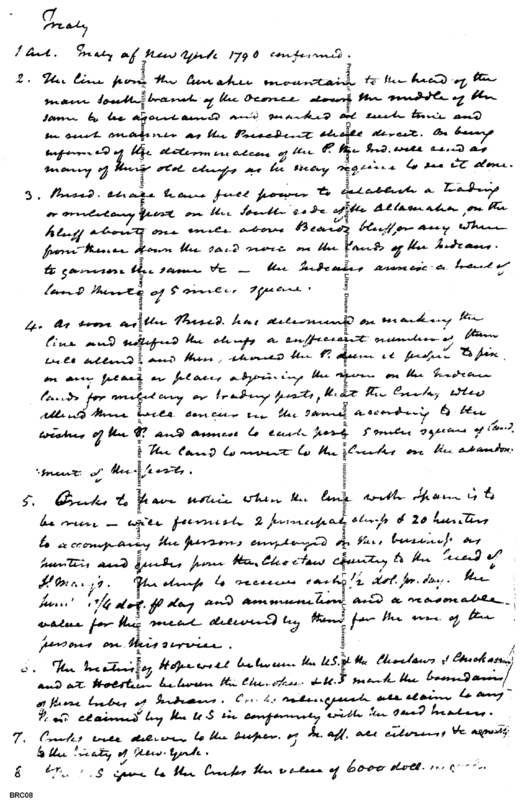 Treaty
1 Art. Treaty of New York 1790 confirmed.
2. The line from the Currahee mountain to the head of the
main South branch of the Oconee down the middle of the
same to be ascertained and marked at such time and
in such manner as the President shall direct. On being
informed of the determination of the P. the Ind. will send as
many of their old chiefs as he may require to see it done.
3. Presid. shall have full power to establish a trading
or military post on the South side of the Allamaha, on the
bluff about one mile above Beards bluff or any where
from thence down the said river on the lands of the Indians.
to garrison the same &c — the Indians annex a tract of
land thereto of 5 miles square.
4. As soon as the Presid. has determined on marking the
line and notified the chiefs a sufficient number of them
will attend and then, should the P. deem it proper to fix
on any place or places adjoining the river on the Indian
lands for military or trading posts, that the Creeks, who
attend there will concur in the same according to the
wishes of the P. and annex to each post 5 miles square of land.
The land to revert to the Creeks on the abandon-
ment of the posts.
5. Creeks to have notice when the line with Spain is to
be run — will furnish 2 principal chiefs & 20 hunters
to accompany the persons employed on this business as
hunters and guides from the Choctaw country to the head of
St. Mary's. The chiefs to receive each 1/2 dol. pr. day. The
1/4 dol. p day and ammunition and a reasonable
value for the meat delivered by them for the use of the
persons on this service.
6. The treaties of Hopewell between the U.S. & the Choctaws & Chickasaws
and at Holston between the Cherokees & U.S mark the boundaries
of those tribes of Indians. Creeks relinquish all claim to any
land claimed by the U S in conformity with the said treaties.
7. Creeks will deliver to the super. of In. aff. all citizens &c agreeably
to the Treaty of New York.
8 U S give to the Creeks the value of 6000 doll. in goods
BRC08